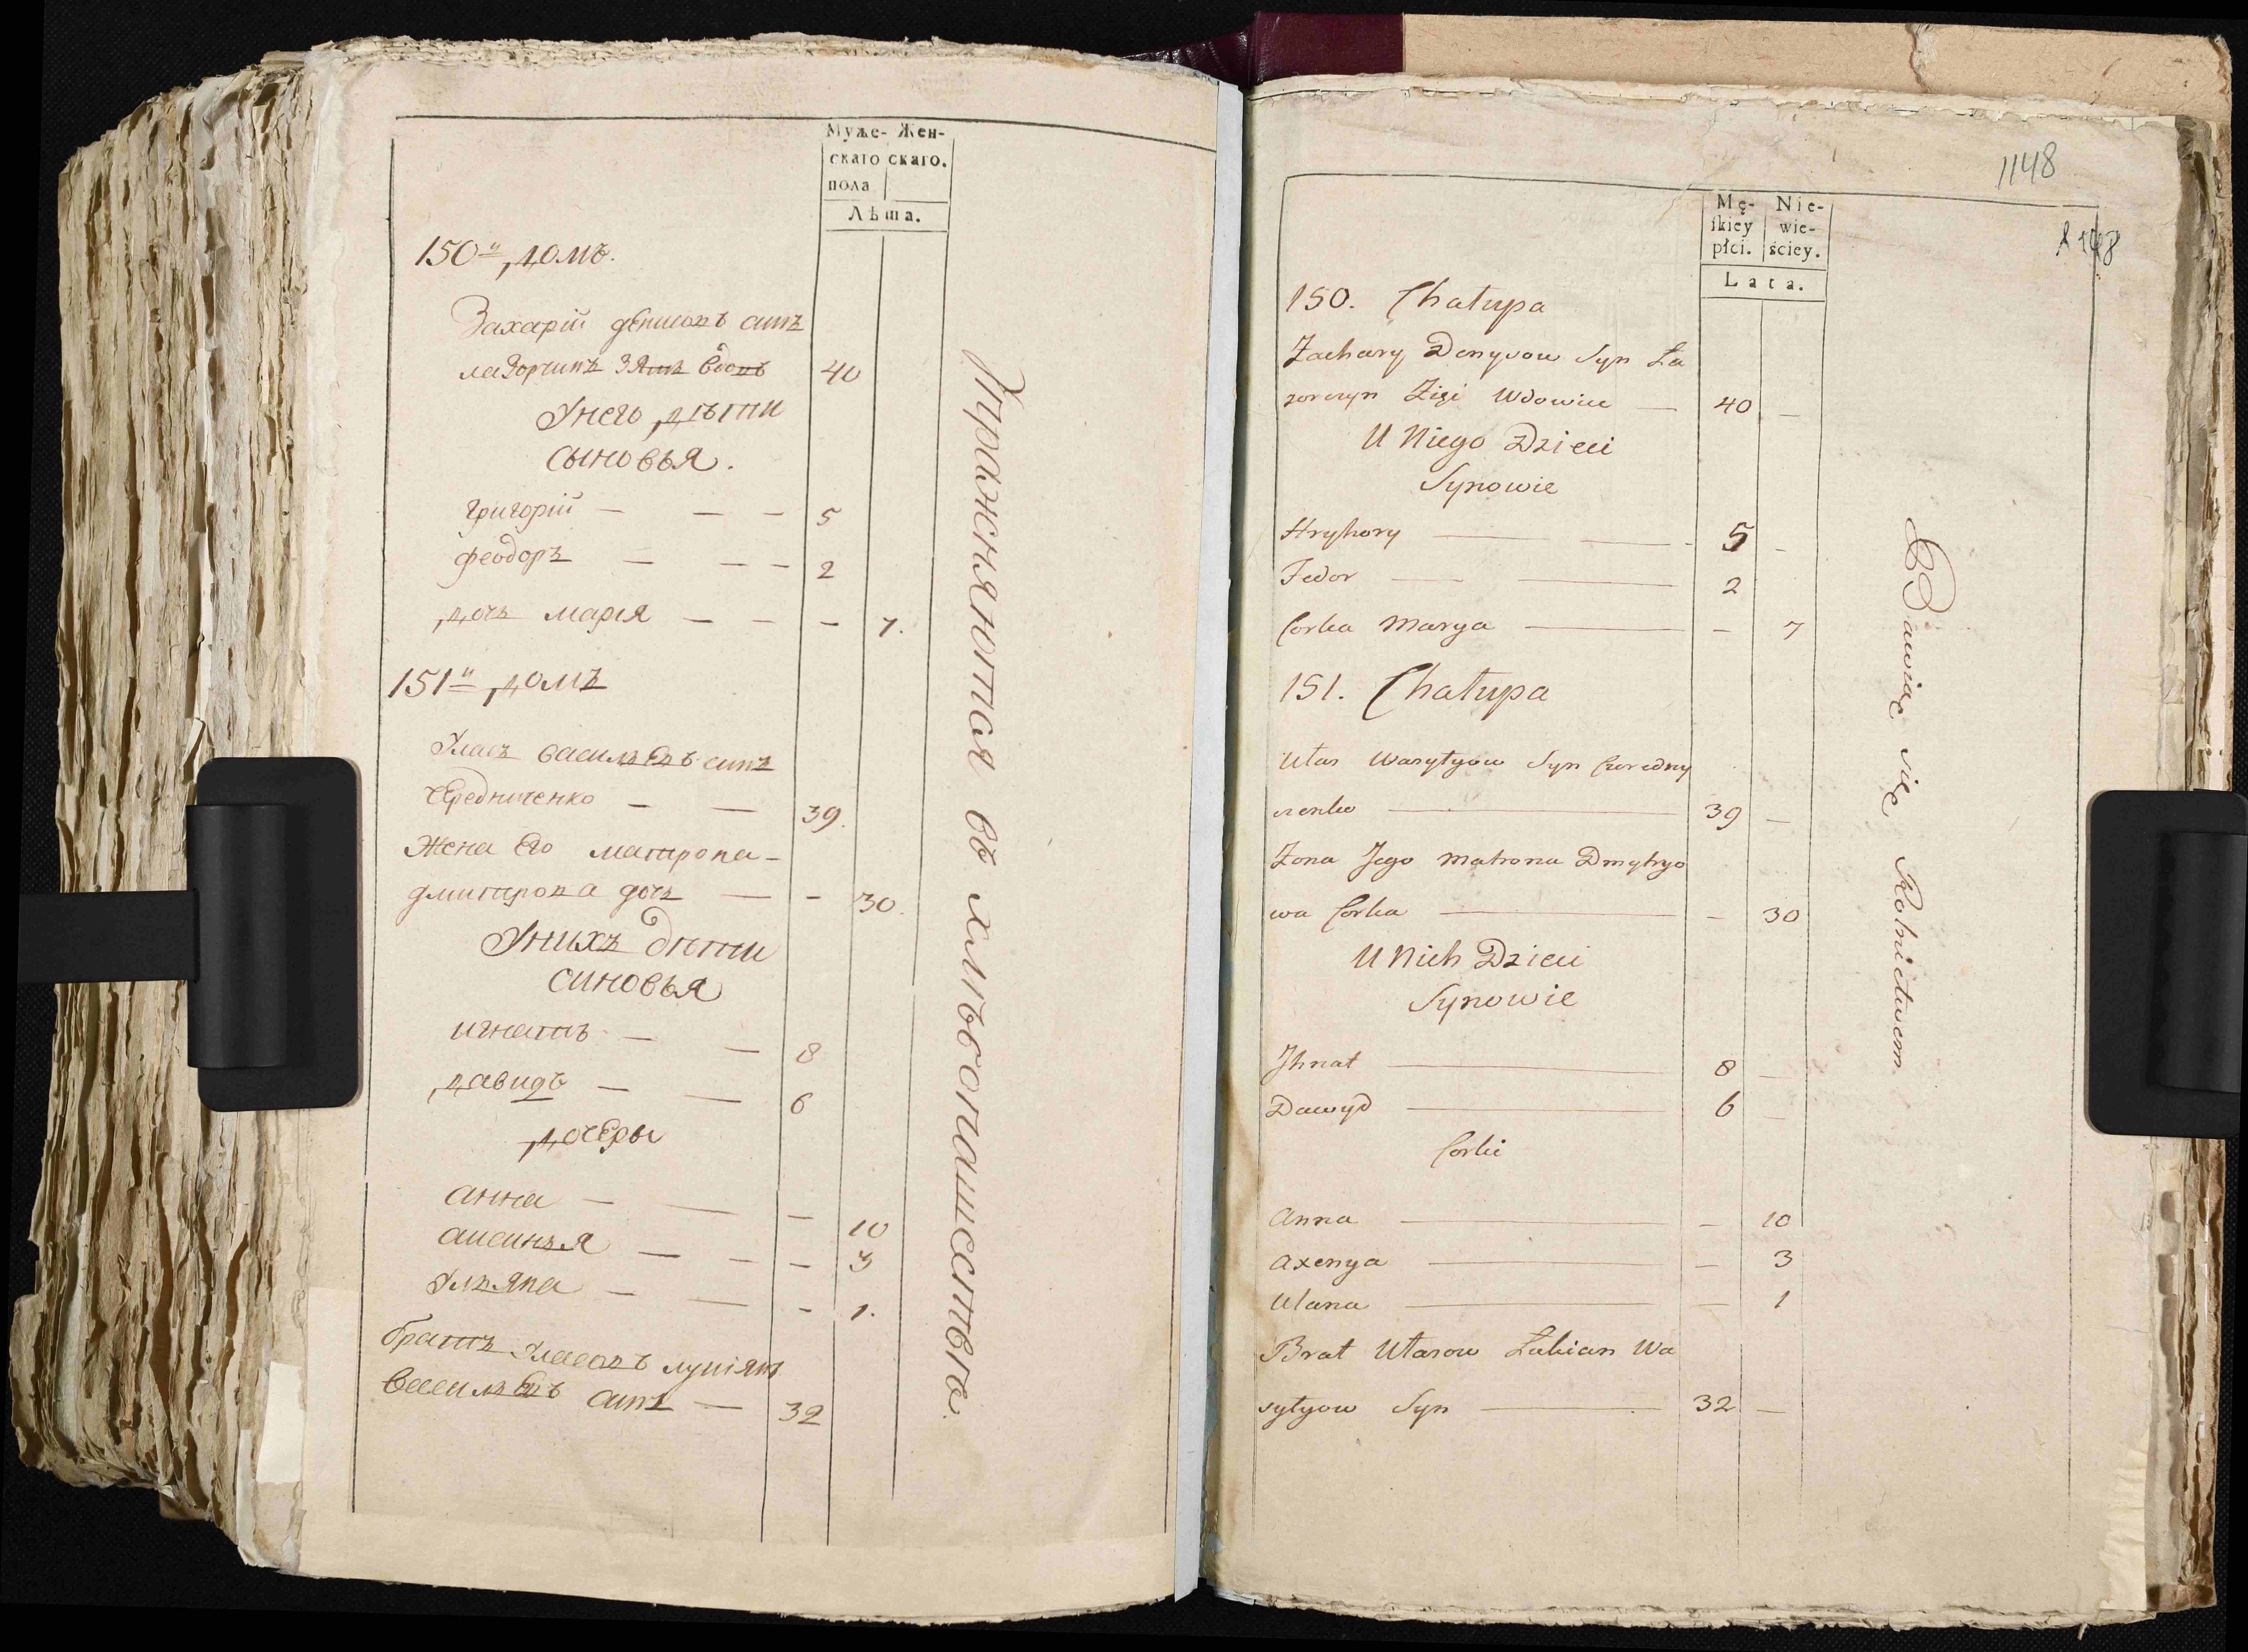 Муже- Жен-
скаго скаго.
пола
Лѣта.
150й домъ.
Захарій денисовъ синъ
лазорчинъ зять вдовъ 40
У него дѣти
сыновья.
григорій — — — 5
феодоръ — — — 2
дочь марія — — — 7.
151й домъ
Уласъ василѣвъ синъ
чередниченко — — 39.
жена его матрона —
дмитрова дочь — — 30.
У нихъ дѣти
синовья
игнатъ — — 8
давидъ — — 6
дочеры
анна — — — 10
аксинья — — — 3
Ульяна — — — 1.
братъ Уласовъ лукіянъ
василѣвъ синъ — 32
Упражняются въ хлѣбопашествѣ.
1148
Mę- Nie-
ſkiey wie-
płci. ściey.
Lata.
150. Chałupa
Zachary Denysow Syn Ła
zorczyn Zięć Wdowiec — 40 —
U Niego Dzieci
Synowie
Hryhory — — 5 -
Fedor — — 2
Corka Marya — — 7
151. Chałupa
Ułas Wasyłyow Syn Czeredny
czenko — 39 —
Zona Jego Matrona Dmytryo
wa Corka — — 30
U Nich Dzieci
Synowie
Jhnat — 8 —
Dawyd — 6 —
Corki
Anna — — 10
Axenya — — 3
Ulana — — 1
Brat Ułasow Łukian Wa
syłyow Syn — 32 —
Bawią się Rolnictwem